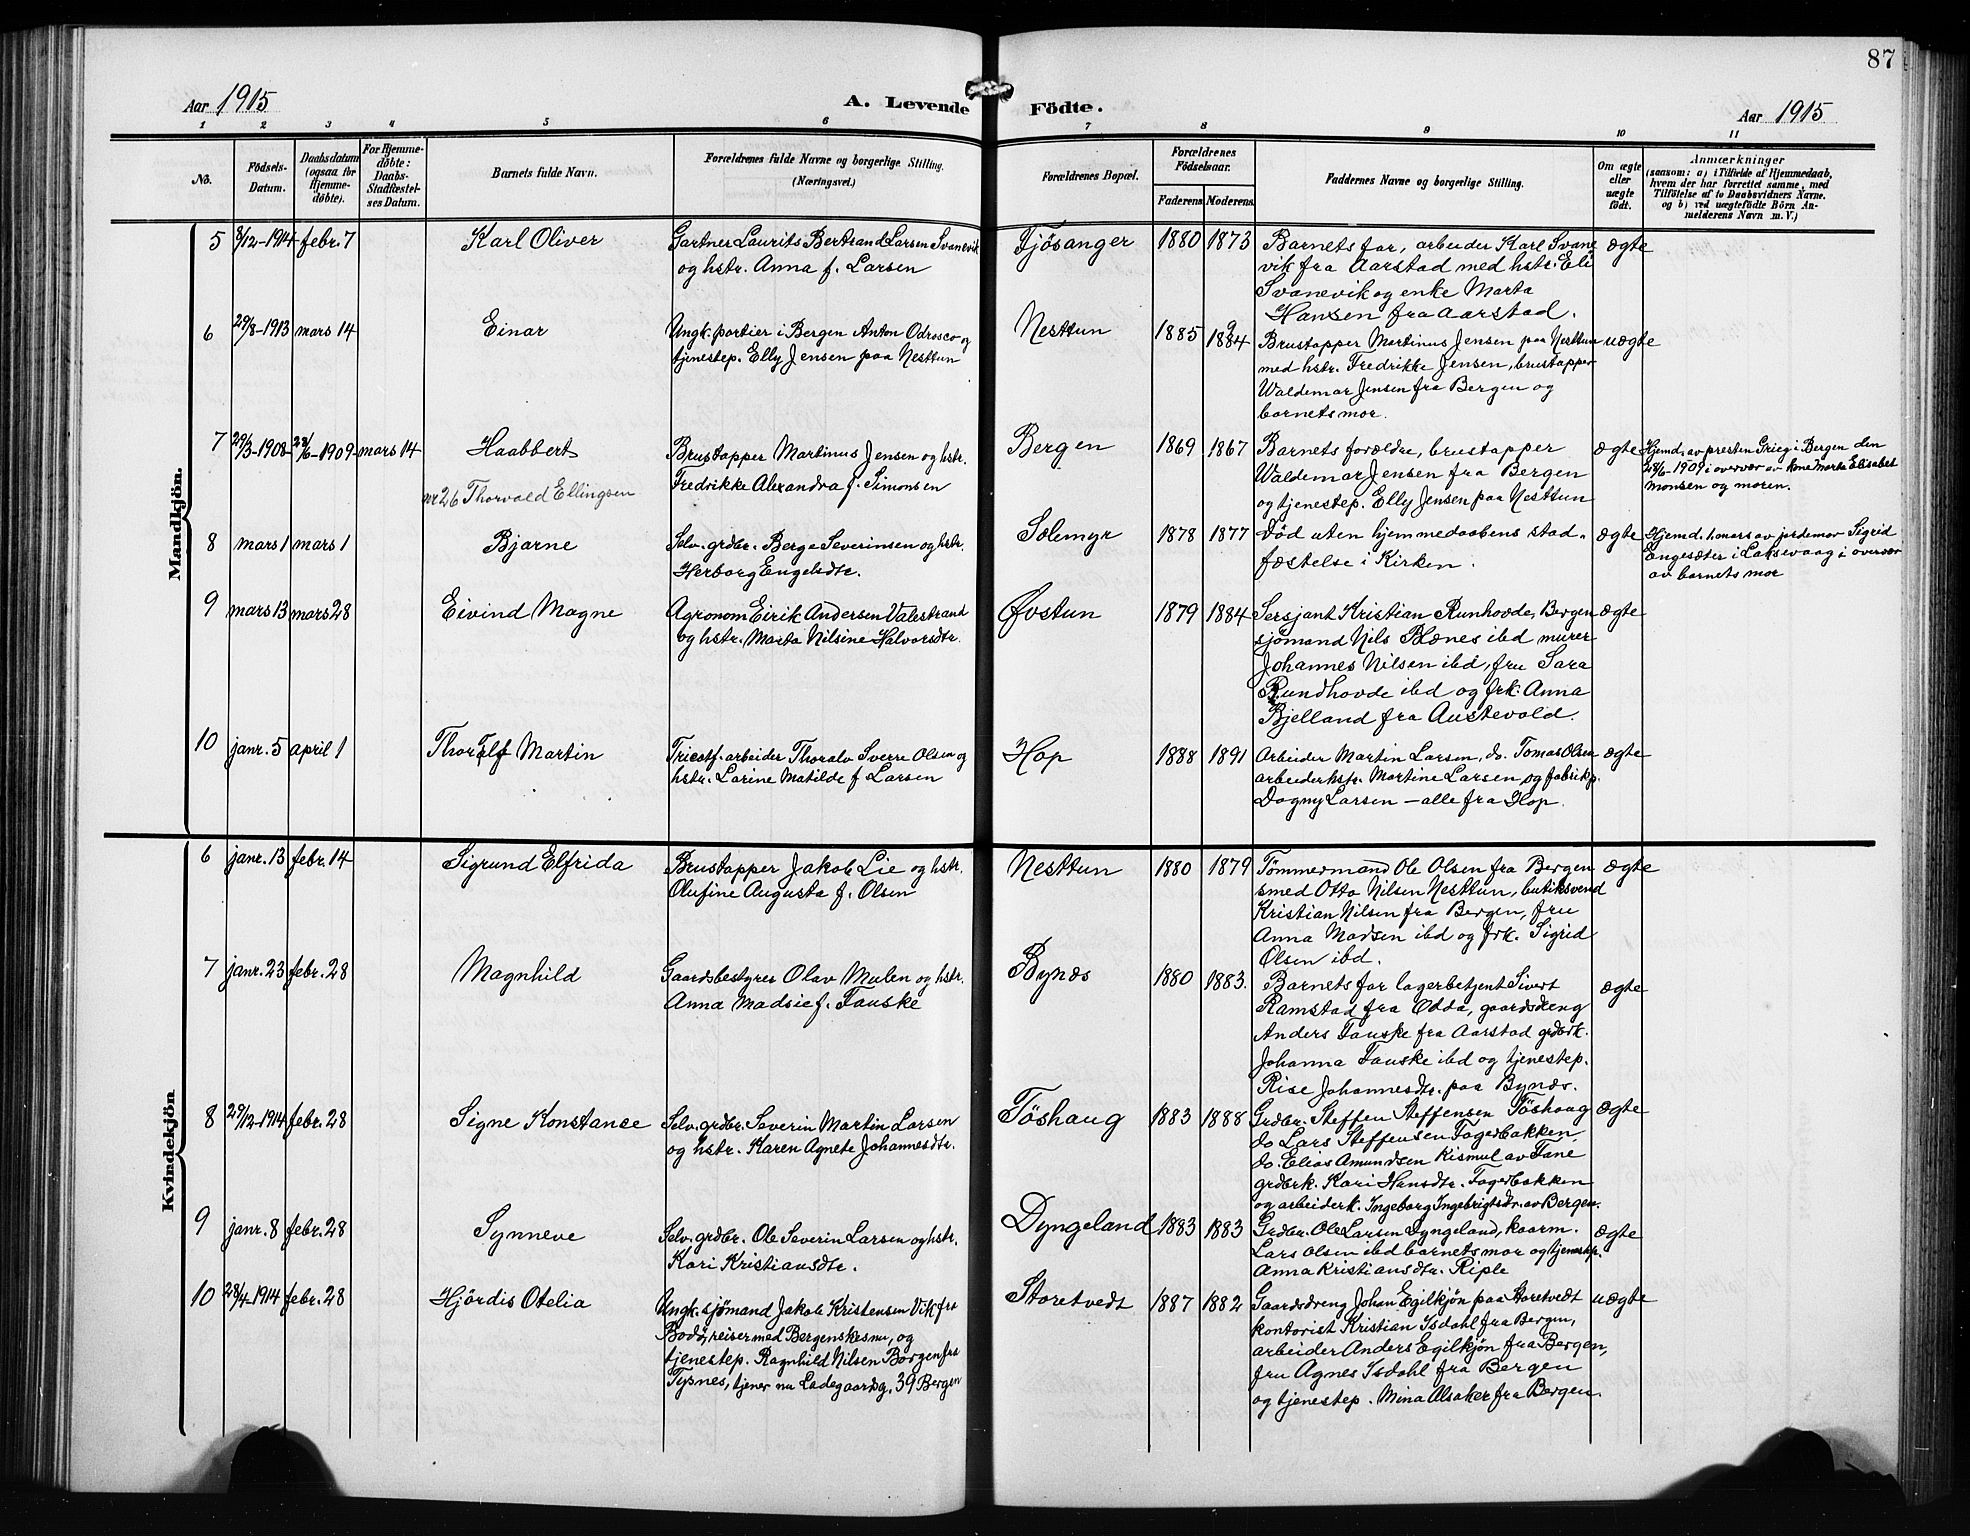 87
Aar 1915
A. Levende Födte.
Aar 1915
1 2 3 4 5 6 7 8 9 10 11
No.
Fødsels-
Datum.
Daabsdatum
(ogsaa for
Hjemme-
døbte).
For Hjemme-
døbte:
Daabs-
Stadfæstel-
ses Datum.
Barnets fulde Navn.
Forældrenes fulde Navne og borgerlige Stilling.
(Næringsvei.)
Forældrenes Bopæl.
Forældrenes
Fødselsaar.
Faderens Moderens
Faddernes Navne og borgerlige Stilling.
Om ægte
eller
uægte
født.
Anmærkninger
(saasom: a) i Tilfælde af Hjemmedaab,
hvem der har forrettet samme, med
Tilføielse af to Daabsvidners Navne,
og b) ved uægtefødte Börn An-
melderens Navn m. V.)
Mandkjön.
5 8/12-1914 febr. 7 Karl Oliver
Gartner Laurits Bertrand Larsen Svanevik
og hstr. Anna f. Larsen
Fjösanger 1880 1873
Barnets far, arbeider Karl Svane
vik fra Aarstad med hstr. Eli
Svanevik og enke Marta
Hansen fra Aarstad.
ægte
6 29/8-1913 mars 14 Einar
Ungk. portier i Bergen Anton Odrosco og
tjenestep. Elly Jensen paa Nesttun
Nesttun 1885 1884
Brustapper Martinus Jensen paa Nesttun
med hstr. Fredrikke Jensen, brustapper
Waldemar Jensen fra Bergen og
barnets mor.
uægte
7 29/3-1908 28/6-1909 mars 14 Haabbert
nr 26 Thorvald Ellingsen
Brustapper Martinus Jensen og hstr.
Fredrikke Alexandra f. Simonsen
Bergen 1869 1867
Barnets forældre, brustapper
Waldemar Jensen fra Bergen
og tjenestep. Elly Jensen paa Nesttun
ægte
Hjemd. av presten Grieg i Bergen den
28/6-1909 i overvær av kone Marta Elisabet
Monsen og moren.
8 mars 1 mars 1 Bjarne
Selv. grdbr. Berge Severinsen og hstr.
Herborg Engelsdtr.
Sælemyr 1878 1877
Død uten hjemmedaabens stad-
fæstelse i Kirken.
ægte
Hjemd. 1 mars av jordemor Sigrid
Engesæter i Laksevaag i overvær
av barnets mor
9 mars 13 mars 28 Eivind Magne
Agronom Eirik Andersen Valestrand
og hstr. Marta Nilsine Halvorsdtr.
Øvstun 1879 1884
Sersjant Kristian Runhovde, Bergen
sjömand Nils Blænes ibd murer
Johannes Nilsen ibd, fru Sara
Rundhovde ibd og frk. Anna
Bjelland fra Austevold.
ægte
10 janr. 5 april 1 Thorolf Martin
Tricotf. arbeider Thoralv Sverre Olsen og
hstr. Larine Matilde f Larsen
Hop 1888 1891
Arbeider Martin Larsen, do. Tomas Olsen
arbeiderhstr. Martine Larsen og fabrikp.
Dagny Larsen — alle fra Hop.
ægte
Kvindekjön
6 janr. 13 febr. 14 Sigrund Elfrida
Brustapper Jakob Lie og hstr.
Olufine Augusta f. Olsen
Nesttun 1880 1879
Tømmermand Ole Olsen fra Bergen
smed Otto Nilsen Nesttun, butiksvend
Kristian Nilsen fra Bergen, fru
Anna Madsen ibd og frk. Sigrid
Olsen ibd.
ægte
7 janr. 23 febr. 28 Magnhild
Gaardsbestyrer Olav Mulen og hstr.
Anna Madsie f. Fauske
Bynes 1880 1883.
Barnets far lagerbetjent Sivert
Ramstad fra Odda, gaardsdreng
Anders Fauske fra Aarstad grdbrk.
Johanna Fauske ibd og tjenestep.
Rise Johannesdtr. paa Bynes.
ægte
8 29/12-1914 febr. 28 Signe Konstanse
Selv. grdbr. Severin Martin Larsen
og hstr. Karen Agnete Johannesdtr.
Töshaug 1883 1888
Grdbr. Steffen Steffensen Töshaug
do Lars Steffensen Fagerbakken
do. Elias Amundsen Kismul av Fane
grdbrk. Kari Hansdtr. Fagerbakken
og arbeiderk. Ingeborg Ingebrigtsdr. av Bergen.
ægte
9 janr. 8 febr. 28 Synneve
Selv. grdbr. Ole Severin Larsen og hstr.
Kari Kristiansdtr.
Dyngeland 1883 1883
Grdbr. Ole Larsen Dyngeland, kaarm.
Lars Olsen ibd barnets mor og tjenestep.
Anna Kristiansdtr. Riple
ægte
10 28/4-1914 febr. 28 Hjördis Otelia
Ungk. sjömand Jakob Kristensen Vik fra
Bodö, reiser med Bergenskesnu, og
tjenestep. Ragnhild Nilsen Borgen fra
Tysnes, tjener nu Ladegaardsg. 39 Bergen
Storetvedt 1887 1882
Gaardsdreng Johan Egilkjön paa Storetvedt
kontorist Kristian Isdahl fra Bergen,
arbeider Anders Egilkjön fra Bergen,
fru Agnes Isdahl fra Bergen
og tjenestep. Mina Alsaker fra Bergen.
uægte